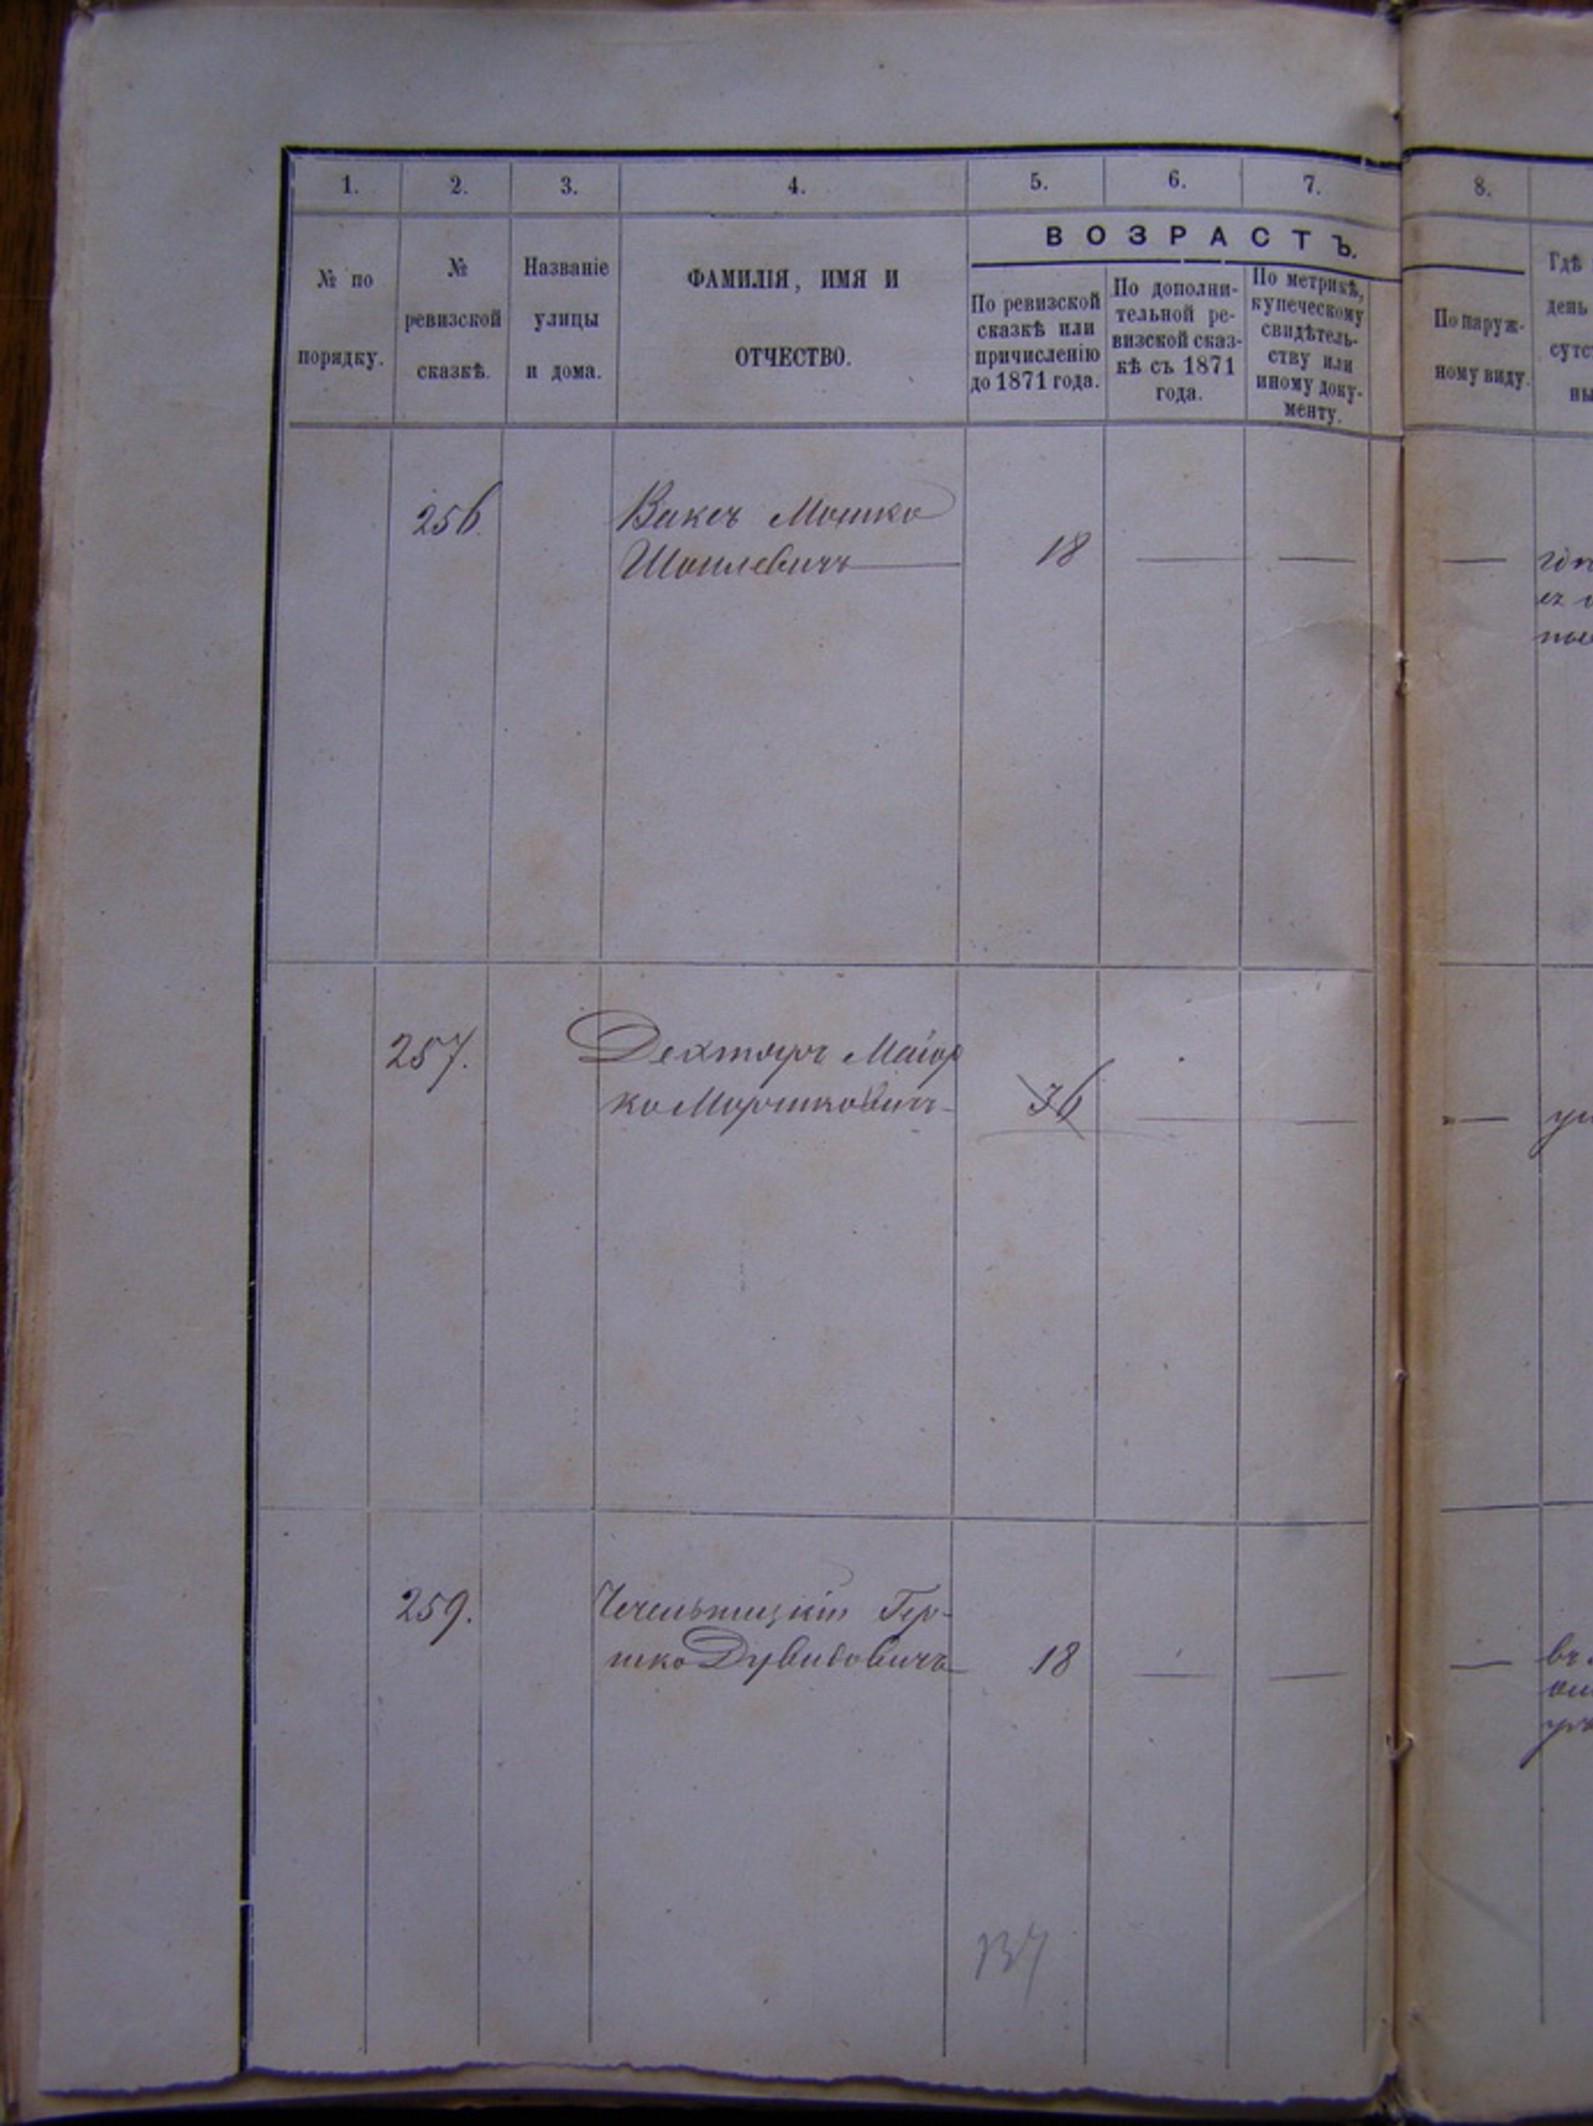 1. 2. 3. 4. 5. 6. 7. 8.
№ по
порядку.
№
ревизской
сказкѣ.
Названіе
улицы
и дома.
ФАМИЛІЯ, ИМЯ И
ОТЧЕСТВО.
ВОЗРАСТЪ.
По ревизской
сказкѣ или
причисленію
до 1871 года.
По дополни-
тельной ре-
визской сказ-
кѣ съ 1871
года.
По метрикѣ,
купеческому
свидѣтель-
ству или
иному доку-
менту.
По наруж-
ному виду.
Гдѣ
день
сутс
ны
256 Ваксъ Мошко
Шоилевичъ 18
257. Дехтяръ Маіор
ко Мошковичъ 36
259. Чечельницкій Гер-
шко Дувидовичъ 18
137